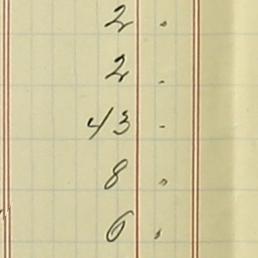 2 "
2 "
43 -
8 "
6 "